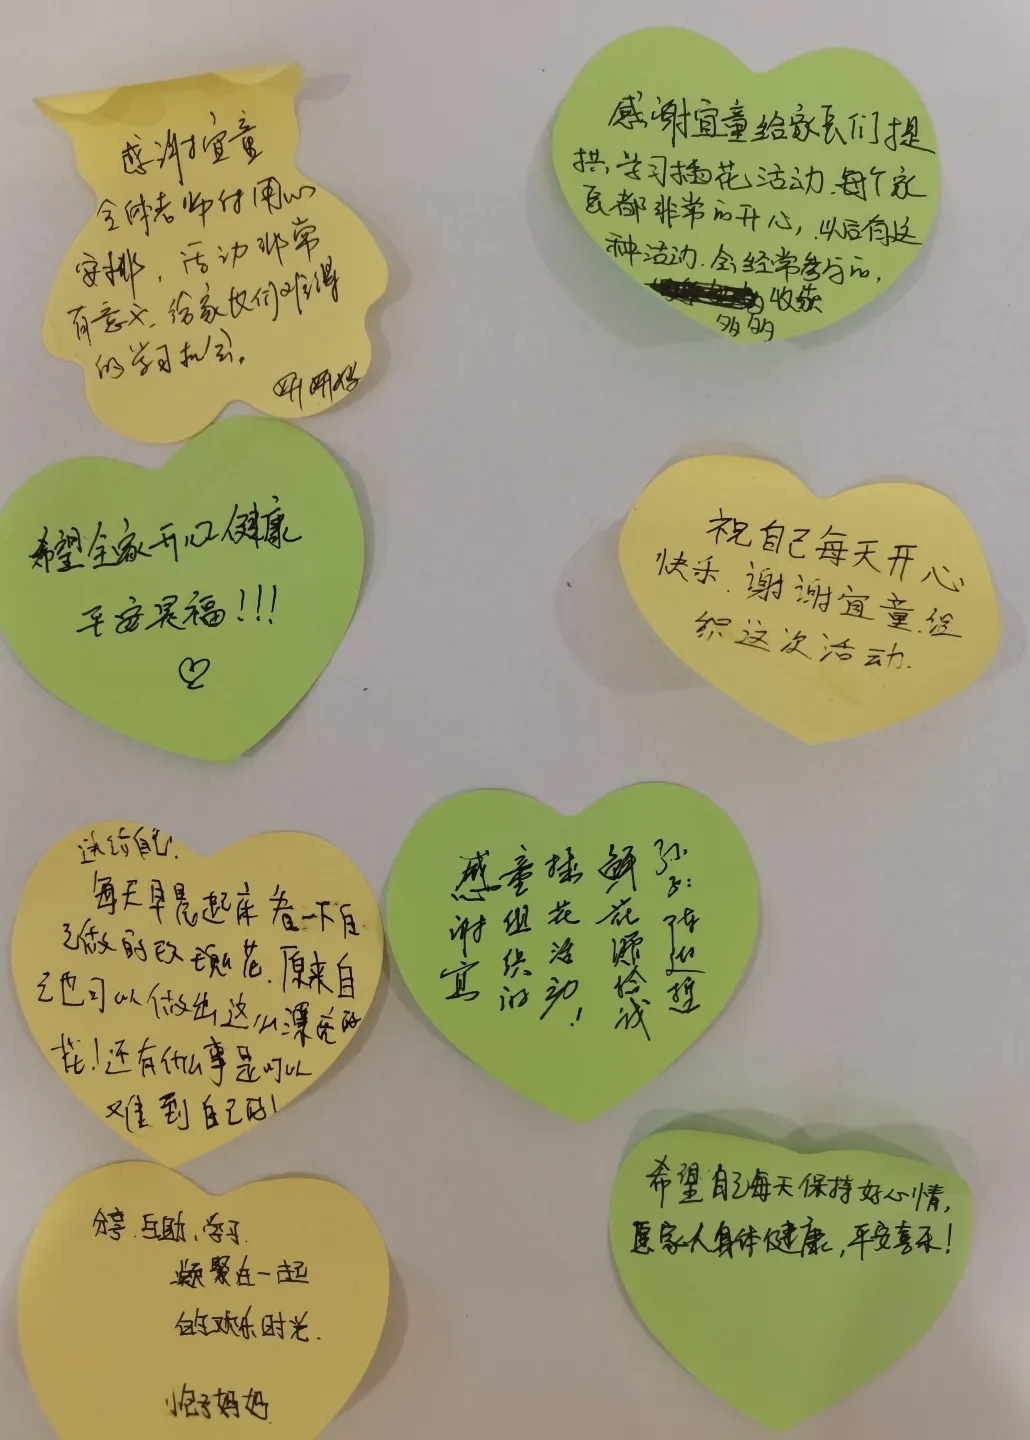 感谢宜童
全体老师付用心
安排，活动非常
有意义、给家长们难得
的学习机会。
妍妍妈
感谢宜童给家长们提
供学习插花活动.每个家
长都非常的开心，以后有这
种活动.会经常参与的，
收获
多多的
希望全家开心健康
平安幸福！！！
祝自己每天开心
快乐.谢谢宜童.组
织这次活动.
送给自己.
每天早晨起床看一下自
己做的玫瑰花.原来自
己也可以做出这么漂亮的
花！还有什么事是可以
难到自己的！
感谢宜
童组织的
插花活动！
鲜花
分享.互助、学习
凝聚在一起
的欢乐时光.
妈妈
希望自己每天保持好心情，
愿家人身体健康，平安喜乐！